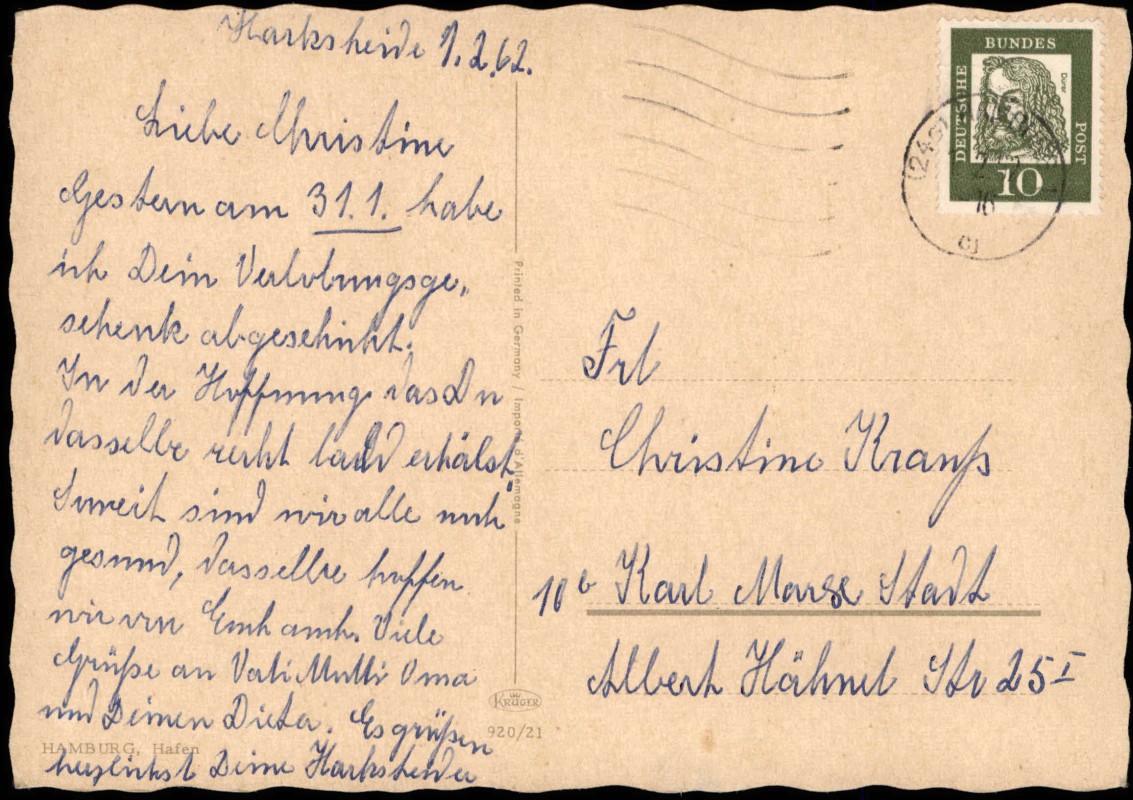 Harksheide 1.2.62.
Liebe Christine
Gestern am 31.1. habe
ich Dein Verlobungsge„
schenk abgeschickt.
In der Hoffnung das Du
dasselbe recht bald erhälst.
Soweit sind wir alle noch
gesund, dasselbe hoffen
wir von Euch auch. Viele
Grüße an Vati Mutti Oma
und Deinen Dieter. Es grüßen
herzlichst Deine Harksheider
HAMBURG, Hafen
Printed in Germany / Importé d'Allemagne
KRÜGER
920/21
DEUTSCHE
BUNDES
POST
Dürer
10
Frl
Christine Krauß
10b Karl Marx Stadt
Albert Hähnel Str 25 I